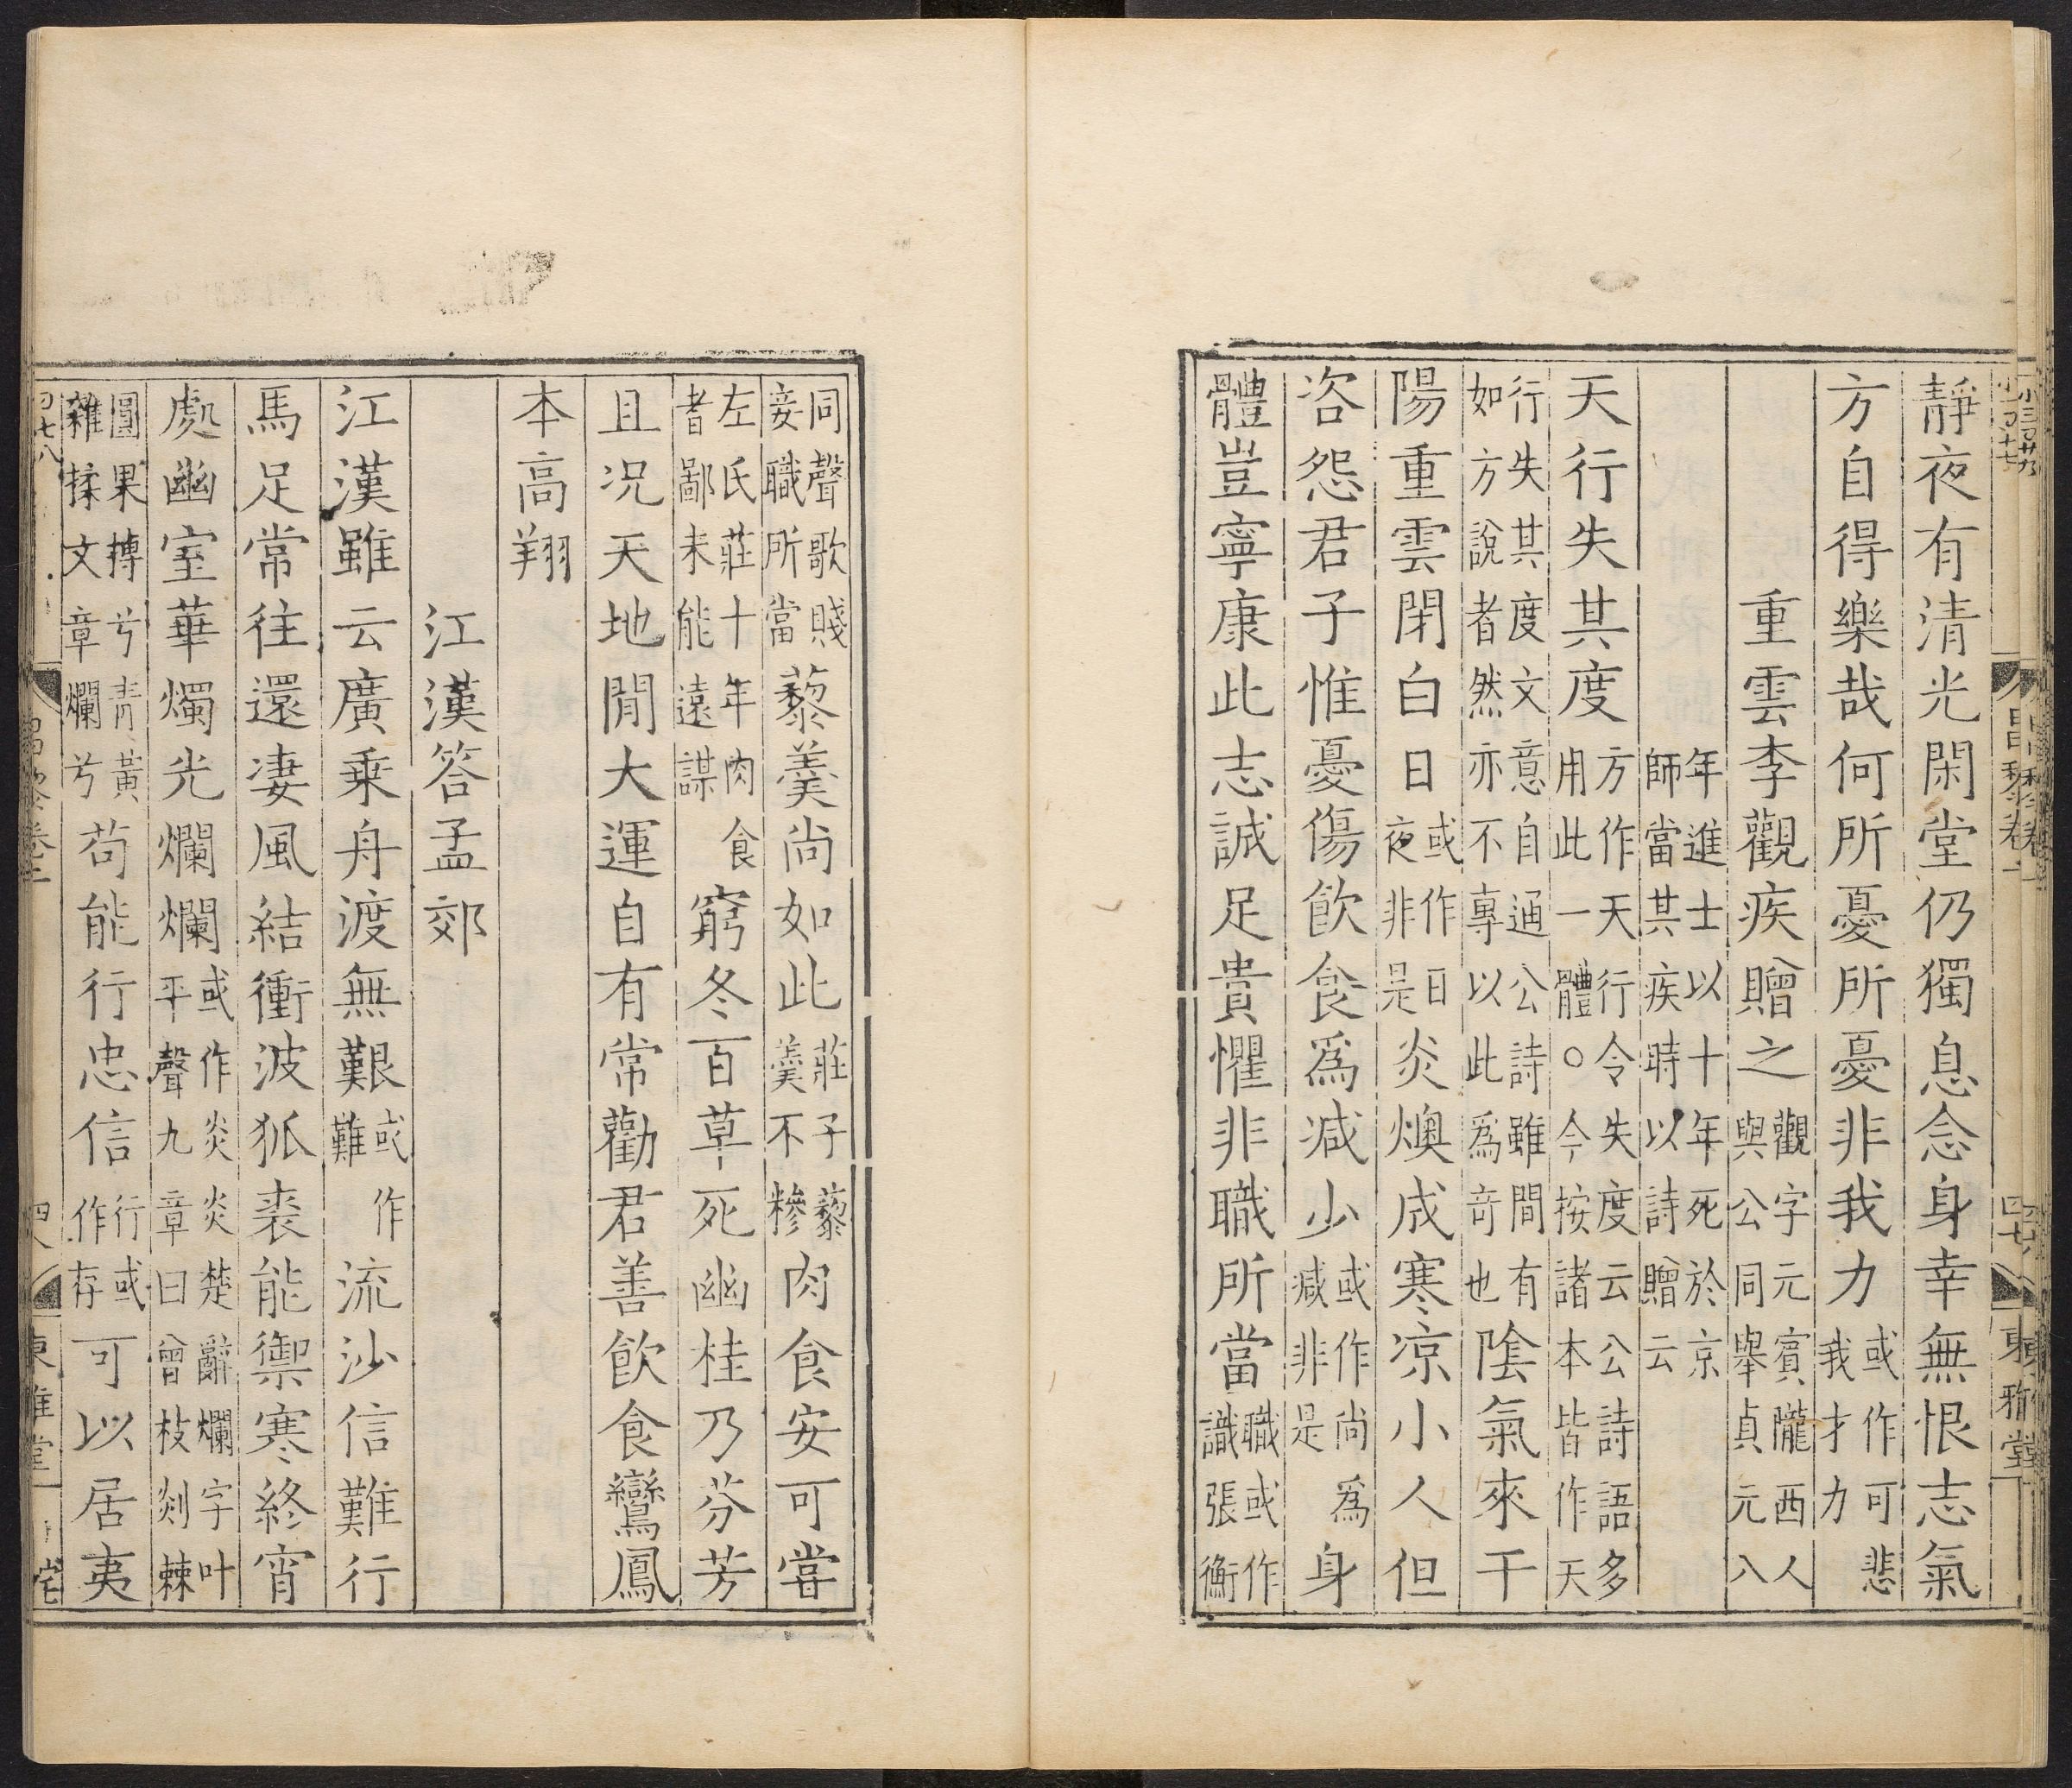 靜夜有清光閑堂仍獨息念身幸無恨志氣
方自得樂哉何所憂所憂非我力或作可悲我才力
重雲李觀疾贈之觀字元賓隴西人與公同舉貞元八
年進士以十年死於京師當其疾時以詩贈云
天行失其度方作天行令失度云公詩語多用此一體○今按諸本皆作天
行失其度文意自通公詩雖間有如方說者然亦不專以此爲奇也陰氣來干
陽重雲閉白日或作日夜非是炎燠成寒凉小人但
咨怨君子惟憂傷飲食爲减少或作尚爲减非是身
體豈寧康此志誠足貴懼非職所當職或作識張衡
同聲歌賤妾職所當藜羹尚如此莊子藜羹不糝肉食安可嘗
左氏莊十年肉食者鄙未能遠謀窮冬百草死幽桂乃芬芳
且况天地間大運自有常勸君善飲食鸞鳳
本高翔
江漢答孟郊
江漢雖云廣乗舟渡無艱或作難流沙信難行
馬足常往還淒風結衝波狐裘能禦寒終宵
處幽室華燭光爛爛或作炎炎楚辭爛字叶平聲九章曰曾枝剡棘
圓果摶兮青黃雜揉文章爛兮苟能行忠信行或作存可以居夷
昌黎卷二
四七
東雅堂
四八
東雅堂